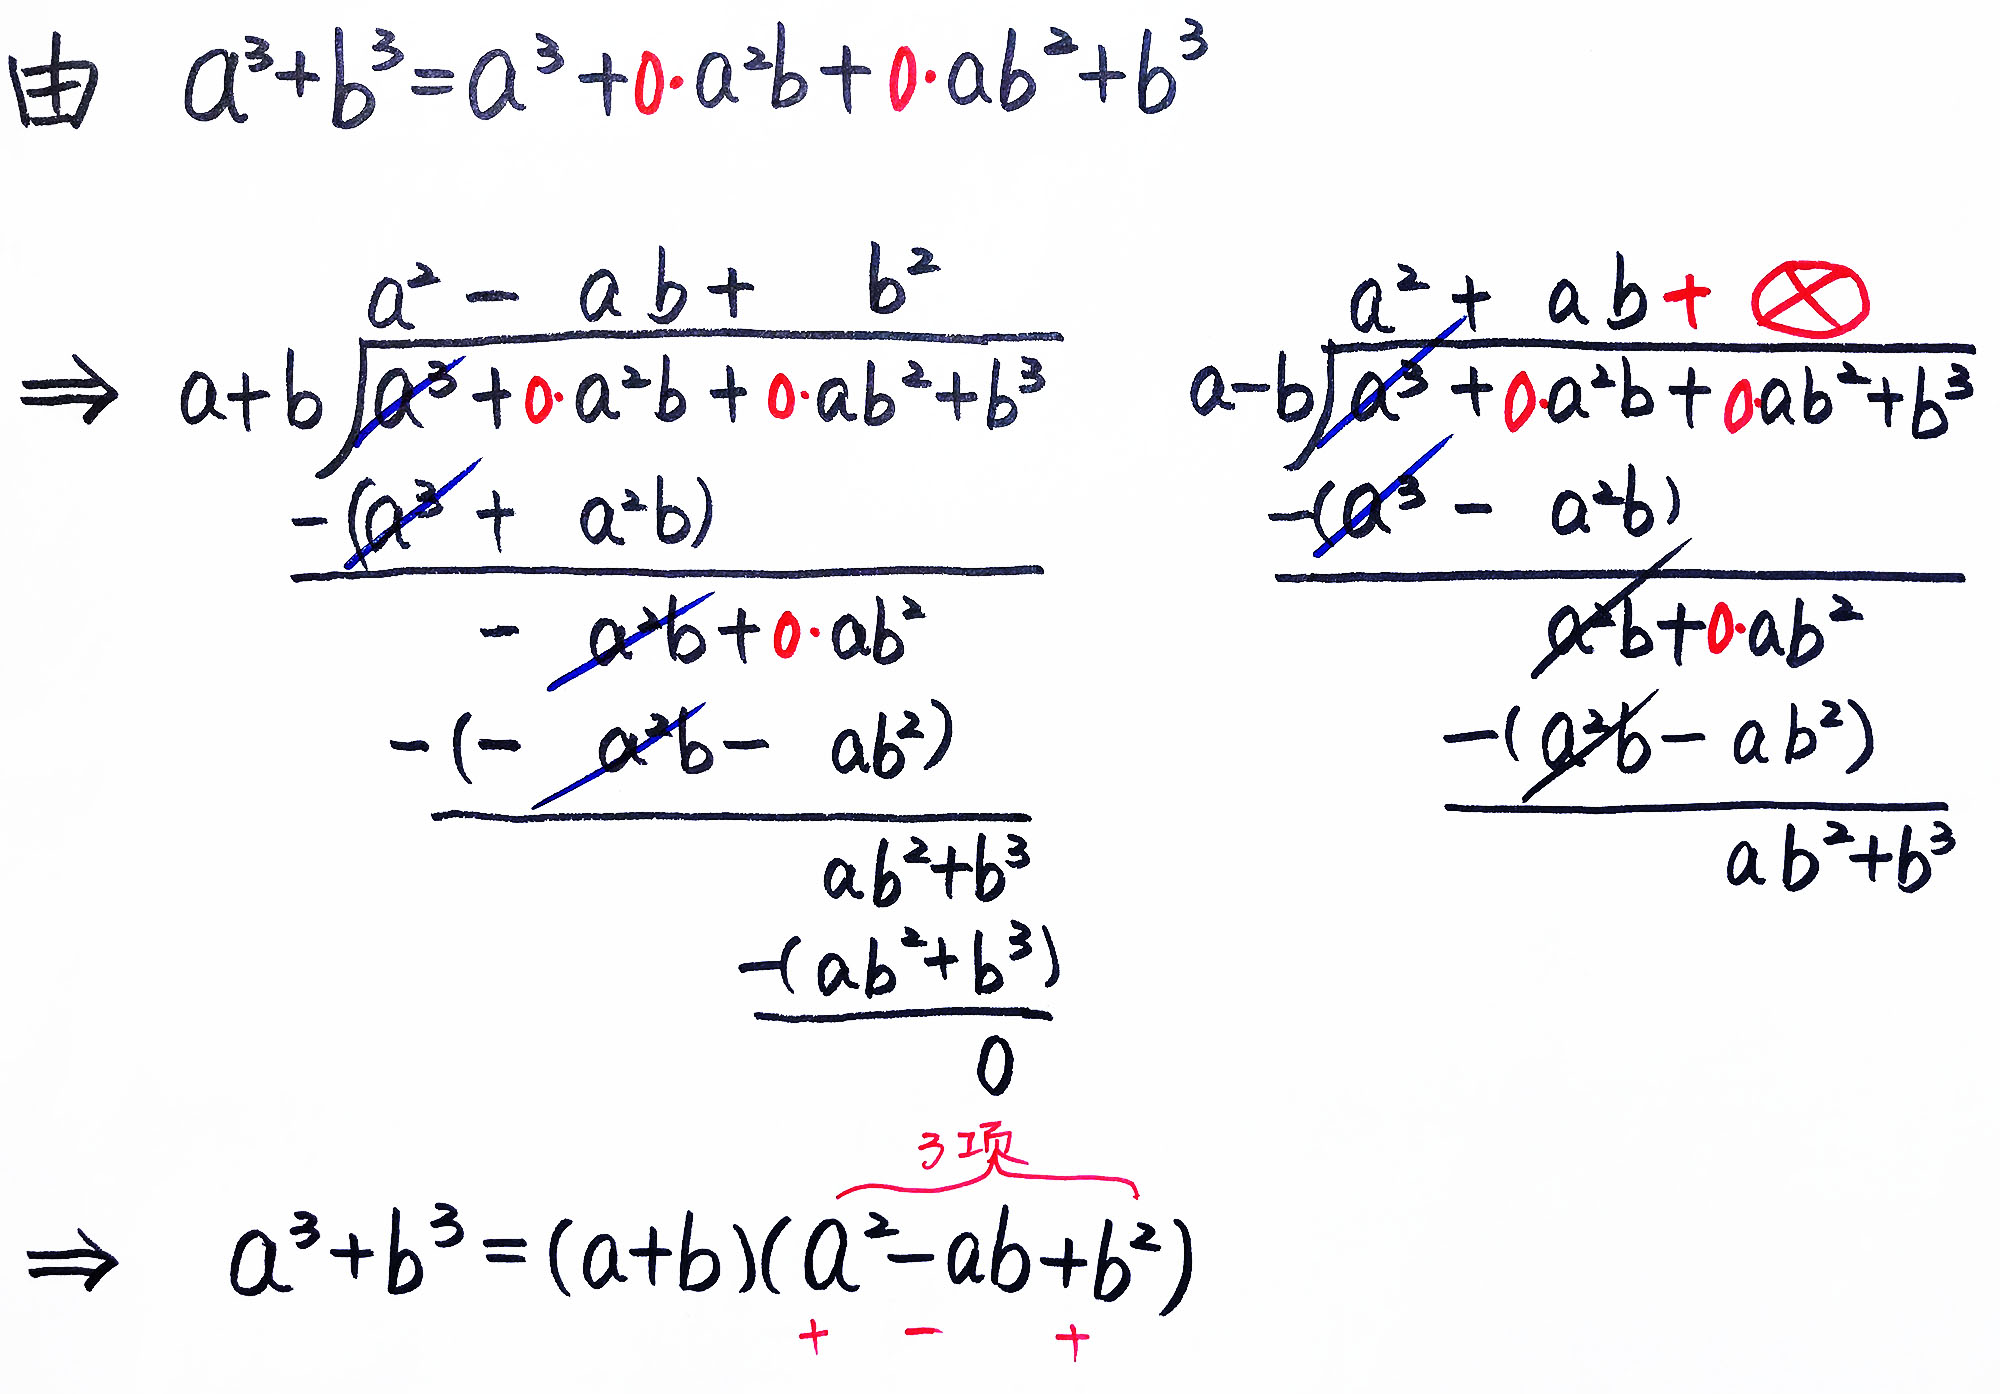 由 a³+b³=a³+0·a²b+0·ab²+b³
a²- ab+ b²
⇒ a+b a³+0·a²b+0·ab²+b³
-(a³+ a²b)
- a²b+0·ab²
-(- a²b- ab²)
ab²+b³
-(ab²+b³)
0
a²+ ab+ ⊗
a-b a³+0·a²b+0·ab²+b³
-(a³- a²b)
a²b+0·ab²
-(a²b-ab²)
ab²+b³
3项
⇒ a³+b³=(a+b)(a²-ab+b²)
+ - +